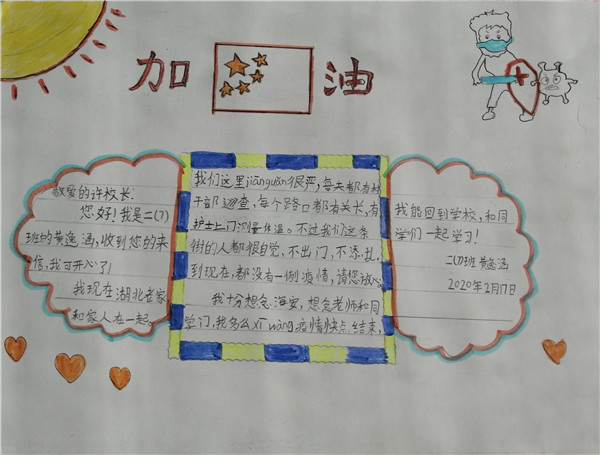 加油
敬爱的许校长:
您好!我是二(7)
班的黄逸涵,收到您的来
信,我可开心了!
我现在湖北老家
和家人在一起。
我们这里jiānguǎn很严,每天都有村
干部巡查,每个路口都有关长,有
护士上门测量体温。不过我们这条
街的人都很自觉,不出门,不添乱,
到现在,都没有一例疫情,请您放心。
我十分想念海安,想念老师和同
学们,我多么xīwàng疫情快点结束,
我能回到学校,和同
学们一起学习!
二(7)班 黄逸涵
2020年2月17日